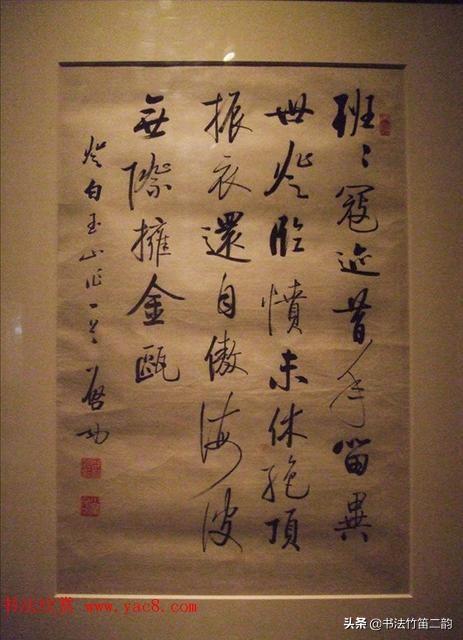 班〻寇迹昔年留異
世登臨憤未休絕頂
振衣還自傲海波
無際擁金甌
登白玉山作一首 啟功
书法欣赏 www.yac8.com
头条 @书法竹笛二韵